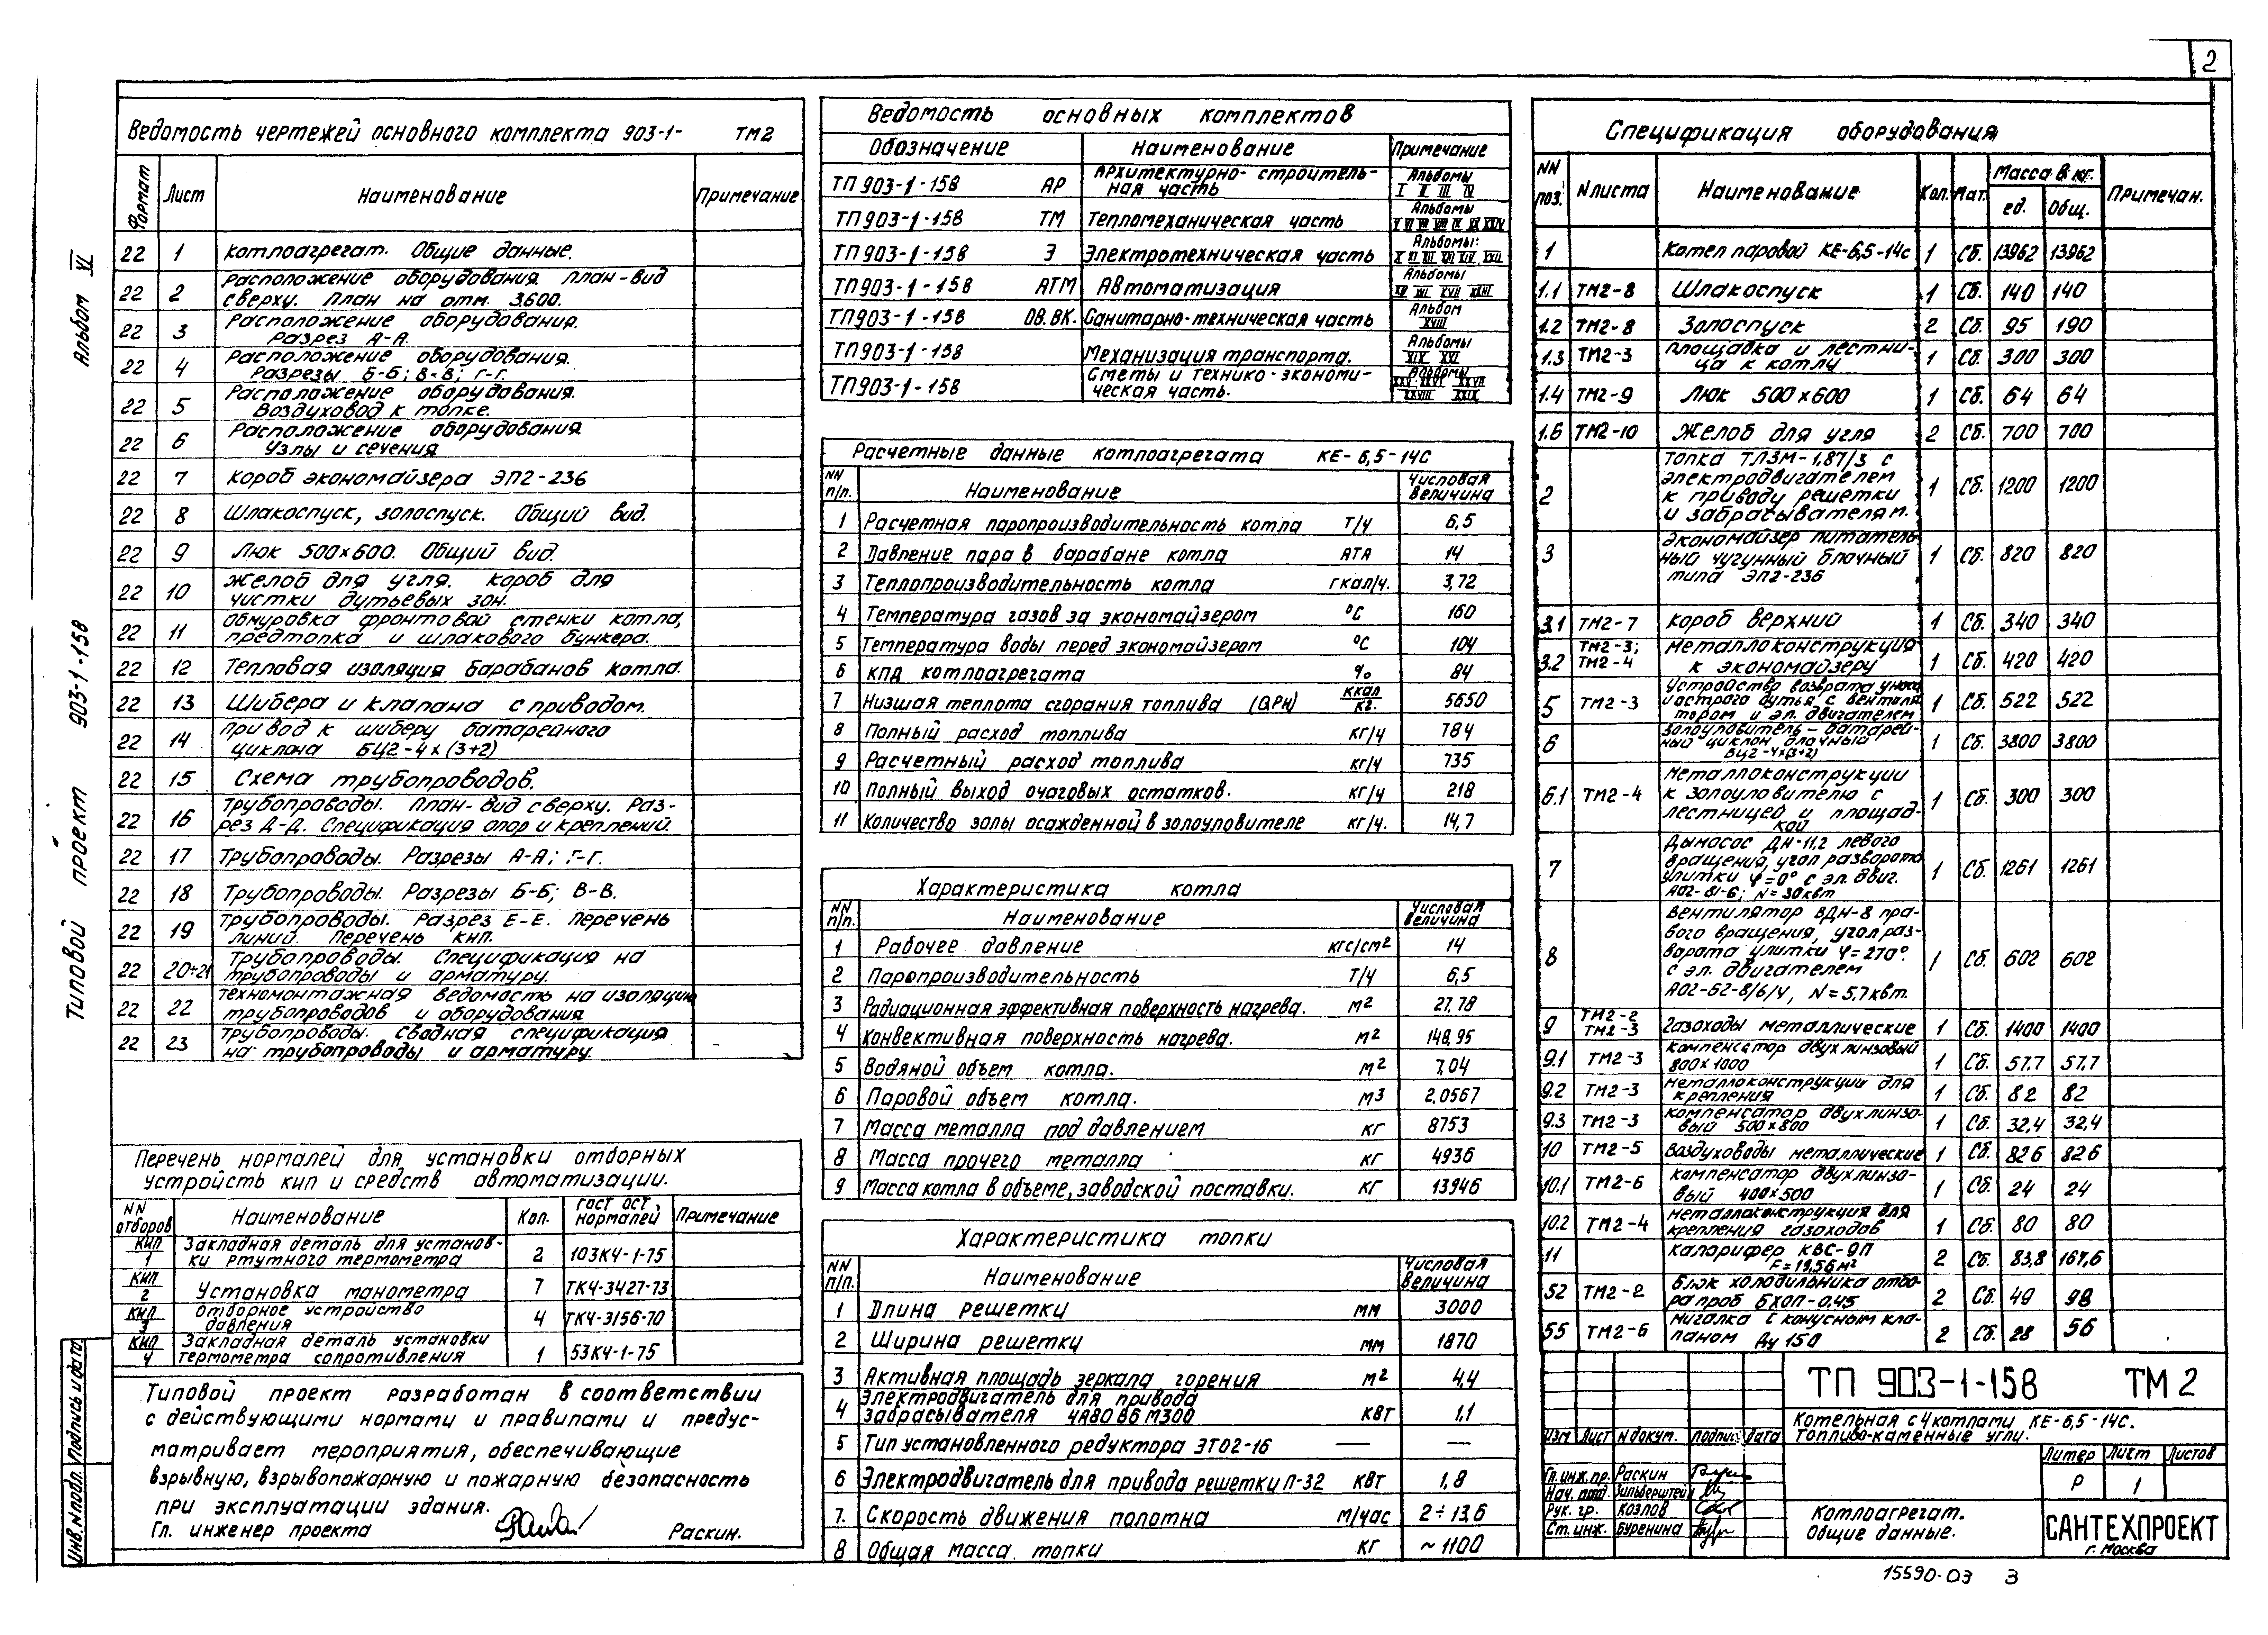 2
Альбом VI
Типовой проект 903-1-158
Инв.N подл. Подпись и дата
Ведомость чертежей основного комплекта 903-1- ТМ2
Формат Лист Наименование Примечание
22 1 Котлоагрегат. Общие данные.
22 2 Расположение оборудования план-вид
сверху. План на отм. 3.600.
22 3 Расположение оборудования.
Разрез А-А.
22 4 Расположение оборудования.
Разрезы Б-Б; В-В; Г-Г.
22 5 Расположение оборудования.
Воздуховод к топке.
22 6 Расположение оборудования
Узлы и сечения
22 7 Короб экономайзера ЭП2-236
22 8 Шлакоспуск, золоспуск. Общий вид.
22 9 Люк 500×600. Общий вид.
22 10 Желоб для угля. Короб для
чистки дутьевых зон.
22 11 Обмуровка фронтовой стенки котла,
предтопка и шлакового бункера.
22 12 Тепловая изоляция барабанов котла.
22 13 Шибера и клапана с приводом.
22 14 Привод к шиберу батарейного
циклона БЦ2-4×(3+2)
22 15 Схема трубопроводов.
22 16 Трубопроводы. План-вид сверху. Раз-
рез Д-Д. Спецификация опор и креплений.
22 17 Трубопроводы. Разрезы А-А; Г-Г.
22 18 Трубопроводы. Разрезы Б-Б; В-В.
22 19 Трубопроводы. Разрез Е-Е. Перечень
линий. Перечень КИП.
22 20÷21 Трубопроводы. Спецификация на
трубопроводы и арматуру.
22 22 Техномонтажная ведомость на изоляцию
трубопроводов и оборудования
22 23 Трубопроводы. Сводная спецификация
на трубопроводы и арматуру.
Перечень нормалей для установки отборных
устройств кип и средств автоматизации.
NN отборов Наименование Кол. ГОСТ ОСТ, нормалей Примечание
КИП 1 Закладная деталь для установ-
ки ртутного термометра 2 103К4-1-75
КИП 2 Установка манометра 7 ТК4-3427-73
КИП 3 Отборное устройство
давления 4 ТК4-3156-70
КИП 4 Закладная деталь установки
термометра сопротивления 1 53К4-1-75
Типовой проект разработан в соответствии
с действующими нормами и правилами и предус-
матривает мероприятия, обеспечивающие
взрывную, взрывопожарную и пожарную безопасность
при эксплуатации здания.
Гл. инженер проекта Раскин.
Ведомость основных комплектов
Обозначение Наименование Примечание
ТП 903-1-158 АР Архитектурно-строитель-
ная часть Альбомы I II III IV
ТП 903-1-158 ТМ Тепломеханическая часть Альбомы
ТП 903-1-158 Э Электротехническая часть Альбомы:
ТП 903-1-158 АТМ Автоматизация Альбомы
ТП 903-1-158 ОВ.ВК. Санитарно-техническая часть Альбом XVIII
ТП 903-1-158 Механизация транспорта. Альбомы
ТП 903-1-158 Сметы и технико-экономи-
ческая часть. Альбомы
Расчетные данные котлоагрегата КЕ-6,5-14С
NN п/п. Наименование Числовая величина
1 Расчетная паропроизводительность котла т/ч 6,5
2 Давление пара в барабане котла АТА 14
3 Теплопроизводительность котла гкал/ч. 3,72
4 Температура газов за экономайзером °С 160
5 Температура воды перед экономайзером °С 104
6 КПД котлоагрегата % 84
7 Низшая теплота сгорания топлива (QРН) ккал/кг. 5650
8 Полный расход топлива кг/ч 784
9 Расчетный расход топлива кг/ч 735
10 Полный выход очаговых остатков. кг/ч 218
11 Количество золы осажденной в золоуловителе кг/ч. 14,7
Характеристика котла
NN п/п. Наименование Числовая величина
1 Рабочее давление кгс/см² 14
2 Паропроизводительность т/ч 6,5
3 Радиационная эффективная поверхность нагрева. м² 27,78
4 Конвективная поверхность нагрева. м² 148,95
5 Водяной объем котла. м² 7,04
6 Паровой объем котла. м3 2,0567
7 Масса металла под давлением кг 8753
8 Масса прочего металла кг 4936
9 Масса котла в объеме, заводской поставки. кг 13946
Характеристика топки
NN п/п. Наименование Числовая величина
1 Длина решетки мм 3000
2 Ширина решетки мм 1870
3 Активная площадь зеркала горения м² 4,4
4 Электродвигатель для привода
забрасывателя 4А80 В6 М300 квт 1,1
5 Тип установленного редуктора ЭТ02-16 — —
6 Электродвигатель для привода решетки П-32 квт 1,8
7. Скорость движения полотна м/час 2÷13,6
8 Общая масса топки кг ~1100
Спецификация оборудования
NN поз. N листа Наименование Кол. Мат. Масса в кг. ед. Общ. Примечан.
1 Котел паровой КЕ-6,5-14с 1 Сб. 13962 13962
1.1 ТМ2-8 Шлакоспуск 1 Сб. 140 140
1.2 ТМ2-8 Золоспуск 2 Сб. 95 190
1.3 ТМ2-3 Площадка и лестни-
ца к котлу 1 Сб. 300 300
1.4 ТМ2-9 Люк 500×600 1 Сб. 64 64
1.6 ТМ2-10 Желоб для угля 2 Сб. 700 700
2 Топка ТЛЗМ-1,87/3 с
электродвигателем
к приводу решетки
и забрасывателям. 1 Сб. 1200 1200
3 Экономайзер питатель-
ный чугунный блочный
типа ЭП2-236 1 Сб. 820 820
3.1 ТМ2-7 Короб верхний 1 Сб. 340 340
3.2 ТМ2-3; ТМ2-4 Металлоконструкция
к экономайзеру 1 Сб. 420 420
5 ТМ2-3 Устройство возврата уноса
и острого дутья с вентиля
тором и эл. двигателем 1 Сб. 522 522
6 Золоуловитель-батарей-
ный циклон блочный
БЦ2-4×(3+2) 1 Сб. 3800 3800
6.1 ТМ2-4 Металлоконструкции
к золоуловителю с
лестницей и площад-
кой 1 Сб 300 300
7 Дымосос ДН-11,2 левого
вращения, угол разворота
улитки φ=0° с эл. двиг.
А02-81-6; N=30квт 1 Сб. 1261 1261
8 Вентилятор ВДН-8 пра-
вого вращения, угол раз-
ворота улитки φ=270°
с эл. двигателем
А02-62-8/6/4, N=5,7квт. 1 Сб. 602 602
9 ТМ2-2 ТМ2-3 Газоходы металлические 1 Сб. 1400 1400
9.1 ТМ2-3 Компенсатор двухлинзовый
800×1000 1 Сб. 57.7 57,7
9.2 ТМ2-3 Металлоконструкции для
крепления 1 Сб. 82 82
9.3 ТМ2-3 Компенсатор двухлинзо-
вый 500×800 1 Сб. 32,4 32,4
10 ТМ2-5 Воздуховоды металлические 1 Сб. 826 826
10.1 ТМ2-6 Компенсатор двухлинзо-
вый 400×500 1 Сб. 24 24
10.2 ТМ2-4 Металлоконструкция для
крепления газоходов 1 Сб. 80 80
11 Калорифер КВС-9П
F=19,56м² 2 Сб. 83,8 167,6
52 ТМ2-2 Блок холодильника отбо-
ра проб БХОП-0.45 2 Сб. 49 98
55 ТМ2-6 Мигалка с конусным кла-
паном Ду 150 2 Сб. 28 56
ТП 903-1-158 ТМ2
Котельная с 4 котлами КЕ-6,5-14С.
Топливо-каменные угли.
Изм Лист N докум. Подпис Дата
Гл.инж.пр. Раскин
Нач. отд. Зильберштейн
Рук. гр. Козлов
Ст. инж. Буренина
Литер Лист Листов
Р 1
Котлоагрегат.
Общие данные.
САНТЕХПРОЕКТ
г. Москва
15590-03 3